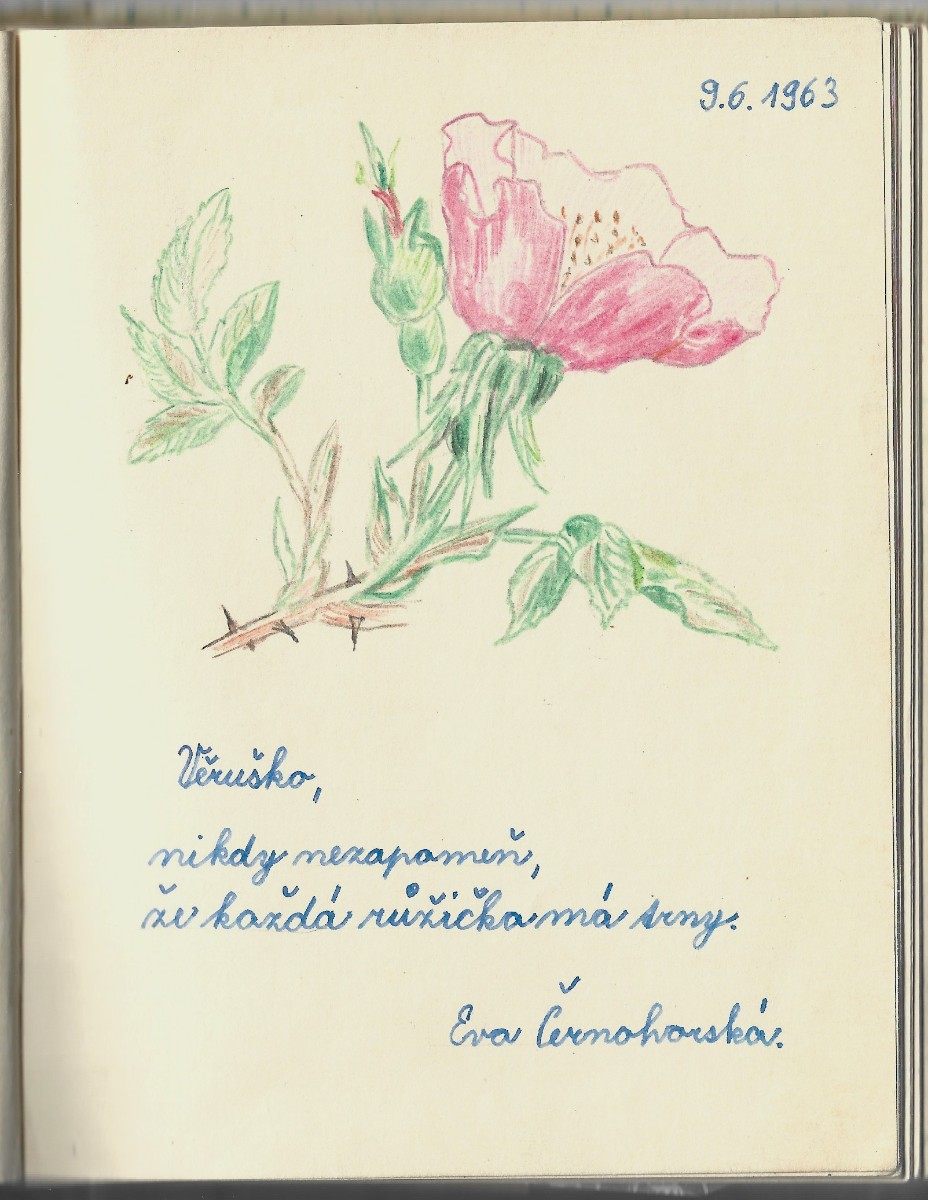 9.6.1963
Věruško,
nikdy nezapomeň,
že každá růžička má trny.
Eva Černohorská.